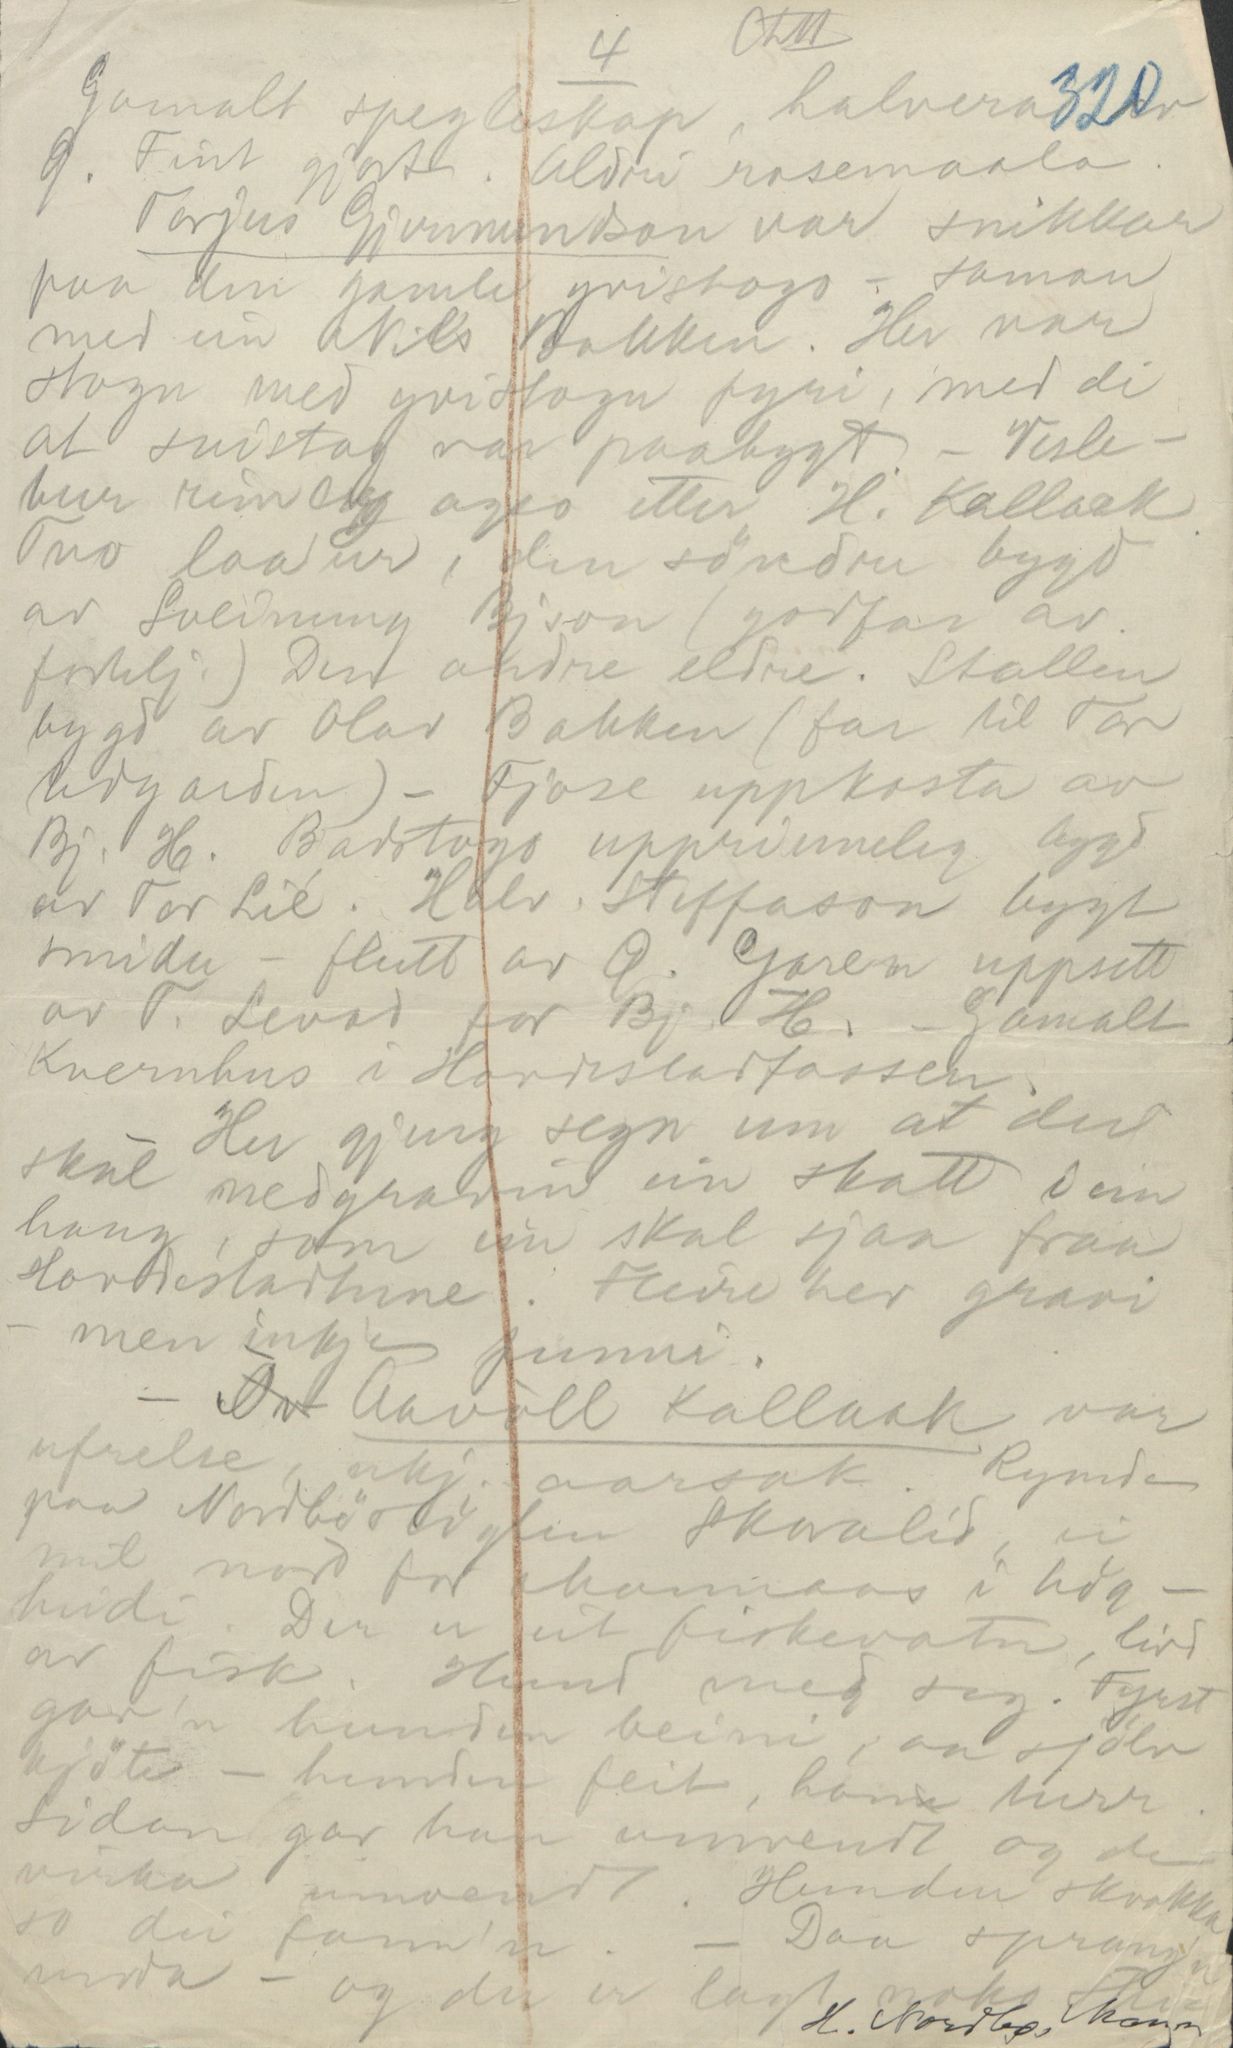 4
320
Gamalt spegleskap, halvera av
G. Fint gjort. Aldri rosemaala.
Tarjus Gjermundson var snikkar
paa den gamle yvistogo - saman
med ein Nils Bakken. Her var
stogu med yvistogu fyri, med di
at svistog var paabygt. - Vesle-
bur rimeleg ogso etter H. Kallaak
Tvo laaur, den söndre bygd
av Sveinung Bjson (godfar av
fortelj.) Den andre eldre. Stallen
bygd av Olav Bakken (far til Tor
Utigarden) - Fjose uppkosta av
Bj. H. Badstogo upprinneleg bygd
av Tor Lie. Halv. Steffason bygt
smidu - flutt av G. Garen uppsett
av T. Levad for Bj. H. - Gamalt
Kvernhus i Hovdestadfossen.
Her gjeng segn um at det
skal nedgravin ein skatt i ein
haug, som ein skal sjaa fraa
Hovdestadtune. Fleire hev gravi
- men inkje funni.
- Aavoll Kallaak var
ufrelse, ukj. aarsak. Rymde
paa Nordbö Skoralid, ei
mil nord for i hög-
heidi. Der er eit fiskevatn, livd
av fisk. Hund med seg. Fyrst
gav'n hunden beini, aa sjölv
kjöte - hunden feit, hann turr.
Sidan gav han umvendt og de
virka umvendt. Hunden skvakka
so dei fann'n. - Daa sprang'n
unda - og de er lagt noko
H. Nordbø,